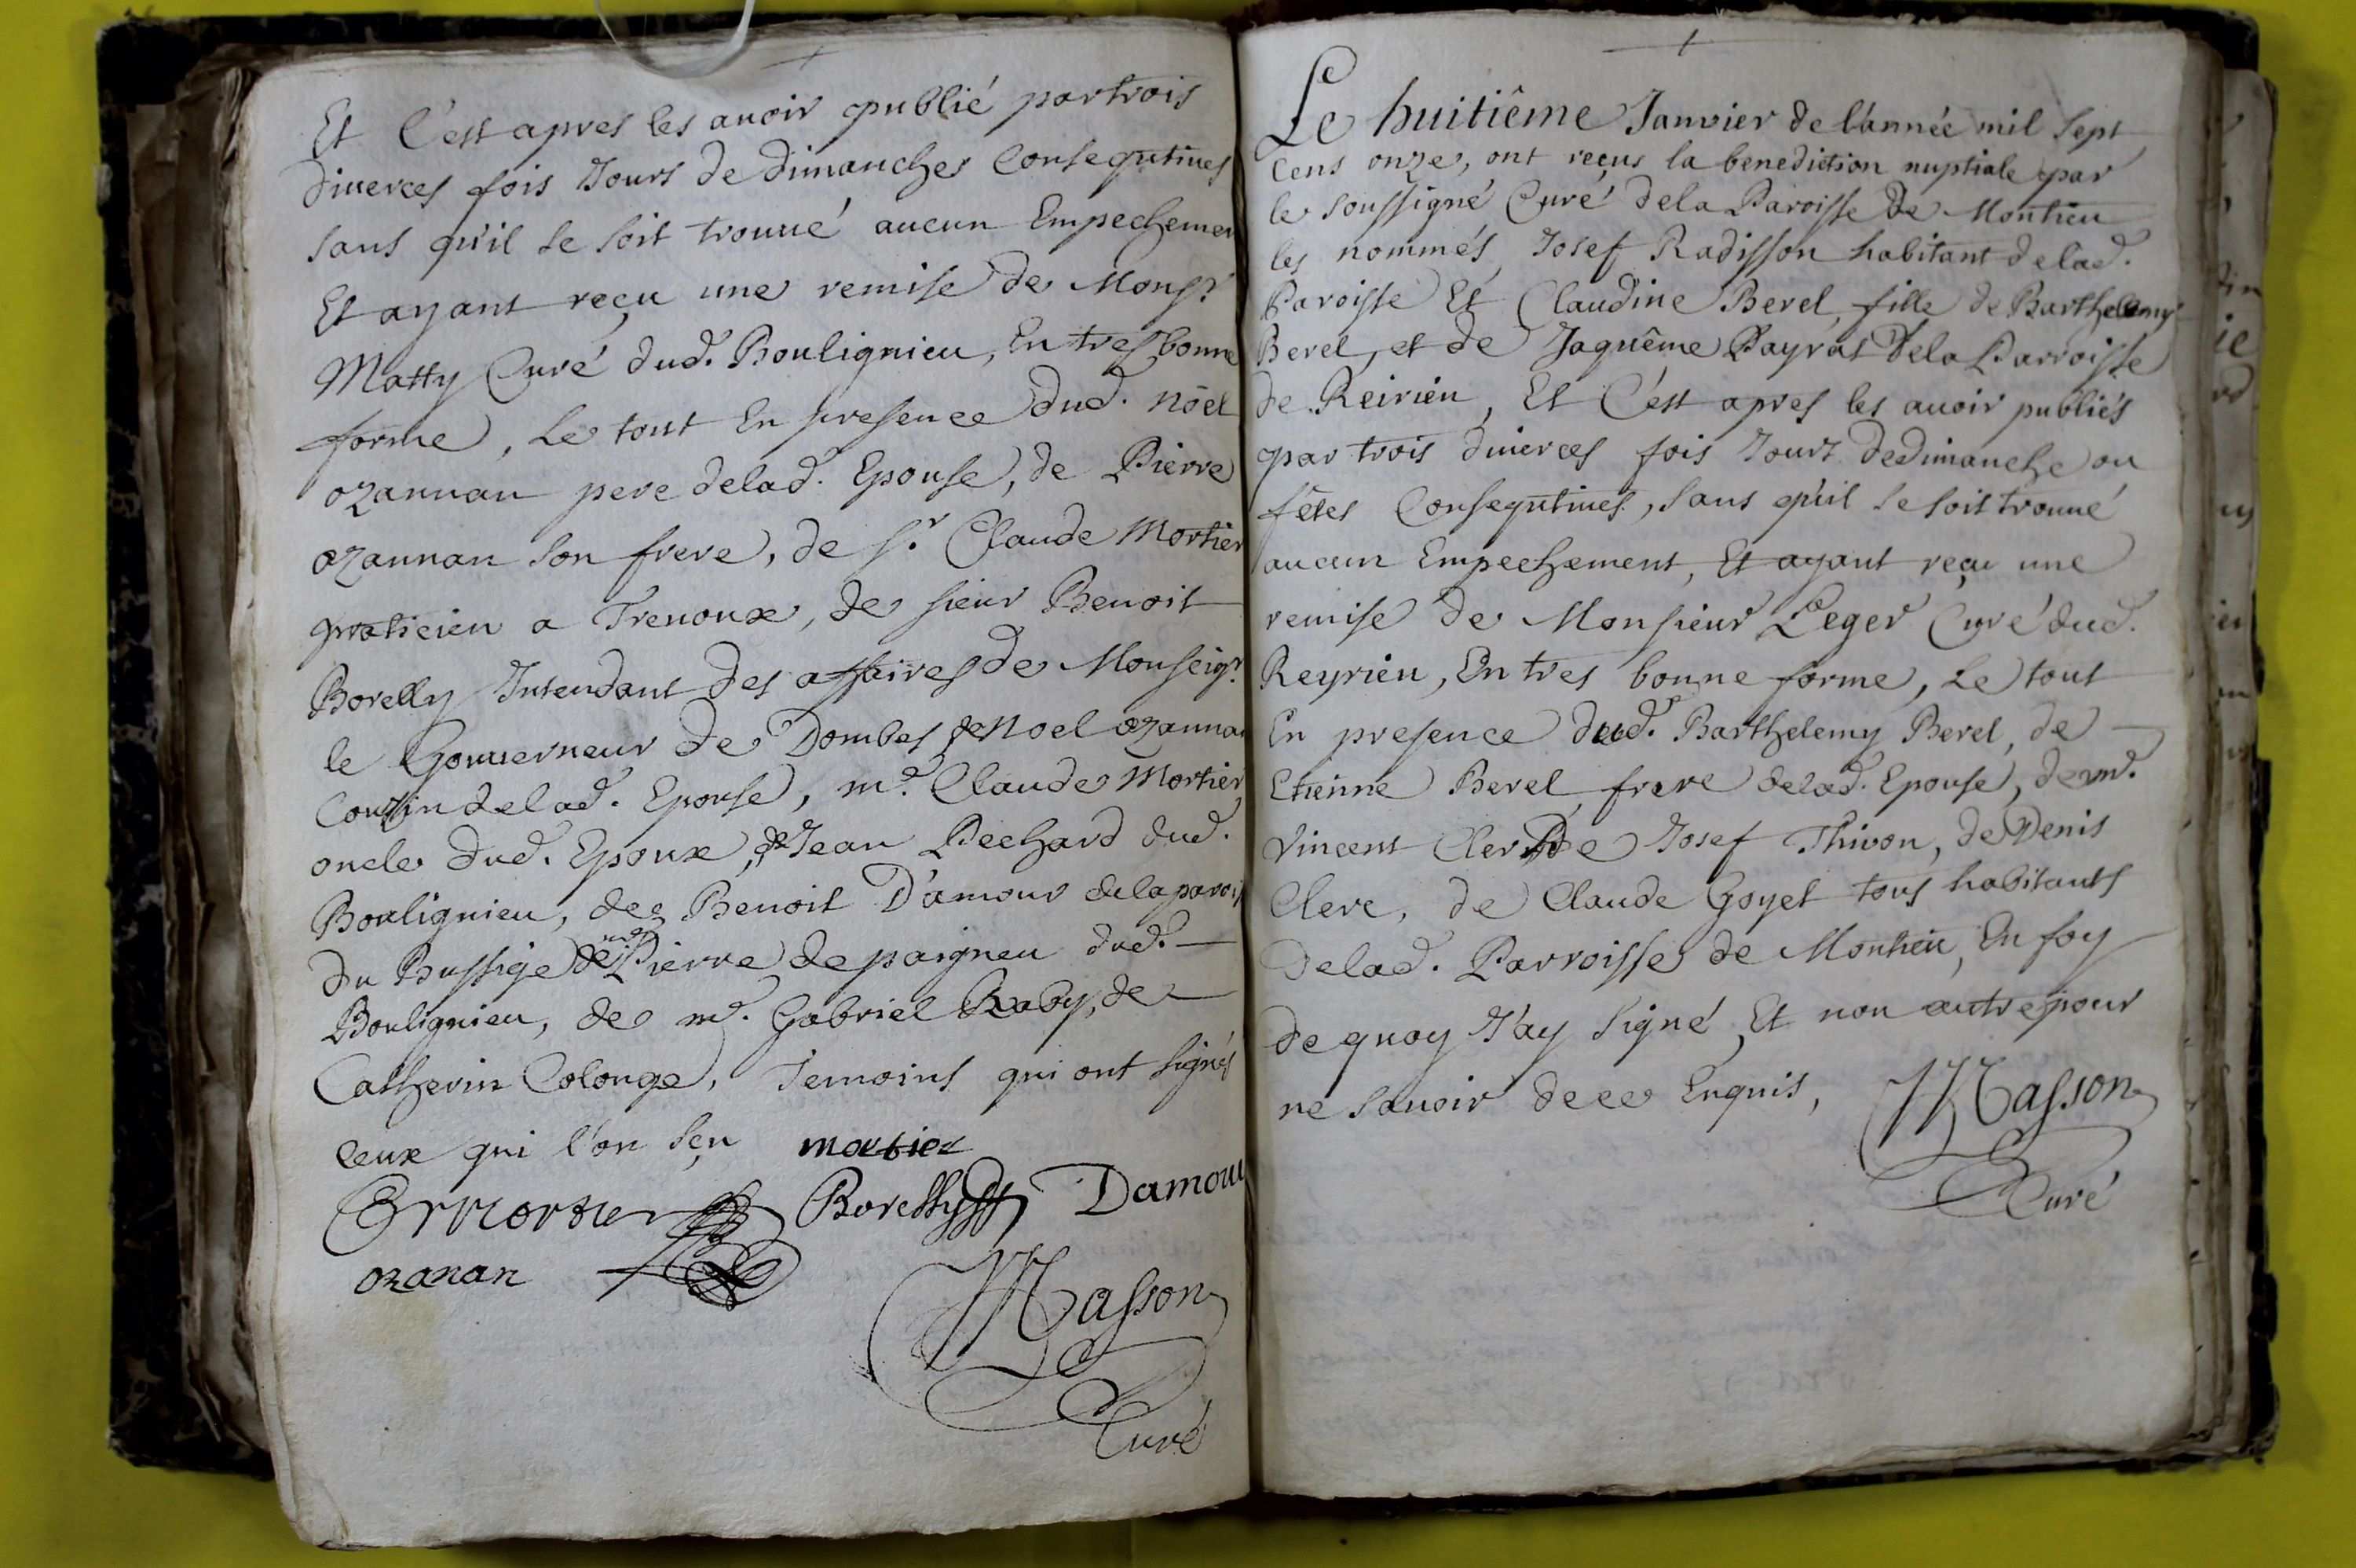 Et C'est apres les avoir publié par trois
diverces fois Jours de dimanches Consequtives
sans qu'il se soit trouué aucun Empechemen
Et ayant reçu une remise de Monsr
Matty Curé dud. Boulignieu, En tres bonne
forme, Le tout En presence dud. Nöel
ozannan pere delad. Epouse, de Pierre
ozannan son frere, de sr. Claude Mortier
praticien a Trenoux, de sieur Benoit
Borelly Intendant des affaires de Monseigr.
le Gouuerneur de Dombes de Noel ozannan
Cousin delad. Epouse, me. Claude Mortier
oncle dud. Epoux, de Jean Pechard dud.
Boulignieu, de Benoit D'amour dela parois
du Bussige de Pierre depaigneu dud.
Boulignieu, de me. Gabriel Raby, de
Catherin Colonge, Temoins qui ont signés
Ceux qui l'on sçu mortier
Mortier Borelly Damour
ozanan
Masson
Curé
Le huitiême Janvier de l'année mil sept
Cens onze, ont reçus la benediction nuptiale par
le soussigné Curé dela Paroisse de Montieu
les nommés Josef Radisson habitant delad.
Paroisse Et Claudine Berel, fille de Barthelemy
Berel, et de Jaquême Payrat Dela Parroisse
de Reirieu, Et C'est apres les auoir publiés
par trois diuerces fois Jours de Dimanche ou
fêtes Consequtiues, sans qu'il se soit trouué
aucun Empechement, Et ayant reçu une
remise de Monsieur Leger Curé dud.
Reyrieu, En tres bonne forme, Le tout
En presence dud. Barthelemy Berel, de
Etienne Berel frere delad. Epouse, de me.
Vincent Clerc De Josef Thivon, de Denis
Clerc, de Claude Goyet tous habitants
Delad. Parroisse de Montieu, En foy
de quoy J'ay signé Et non autre pour
ne sauoir de ce Enquis, Masson
Curé